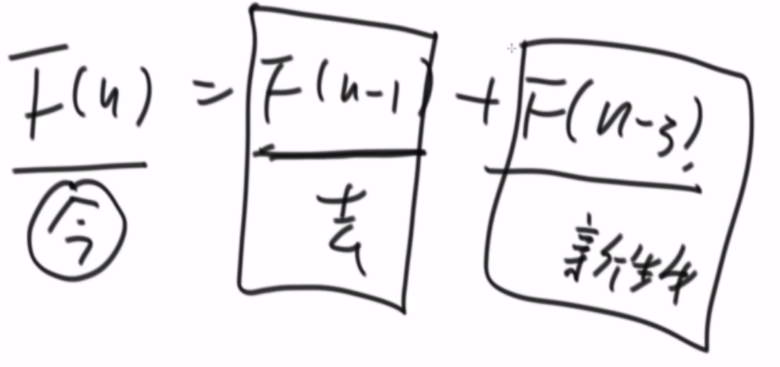 F(n) = F(n-1) + F(n-3)
今 去 新生牛